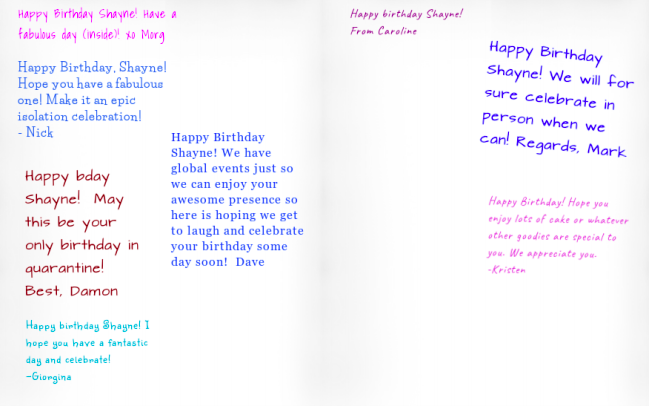 Happy Birthday Shayne! Have a
fabulous day (inside)! xo Morg
Happy Birthday, Shayne!
Hope you have a fabulous
one! Make it an epic
isolation celebration!
- Nick
Happy Birthday
Shayne! We have
global events just so
we can enjoy your
awesome presence so
here is hoping we get
to laugh and celebrate
your birthday some
day soon!  Dave
Happy bday
Shayne!  May
this be your
only birthday in
quarantine!
Best, Damon
Happy birthday Shayne! I
hope you have a fantastic
day and celebrate!
~Giorgina
Happy birthday Shayne!
From Caroline
Happy Birthday
Shayne! We will for
sure celebrate in
person when we
can! Regards, Mark
Happy Birthday! Hope you
enjoy lots of cake or whatever
other goodies are special to
you. We appreciate you.
-Kristen